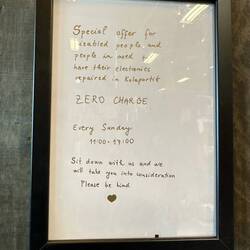 Special offer for
disabled people and
people in need to
have their electronics
repaired in Kolaportið
ZERO CHARGE
Every Sunday
11:00-17:00
Sit down with us and we
will take you into consideration
Please be kind